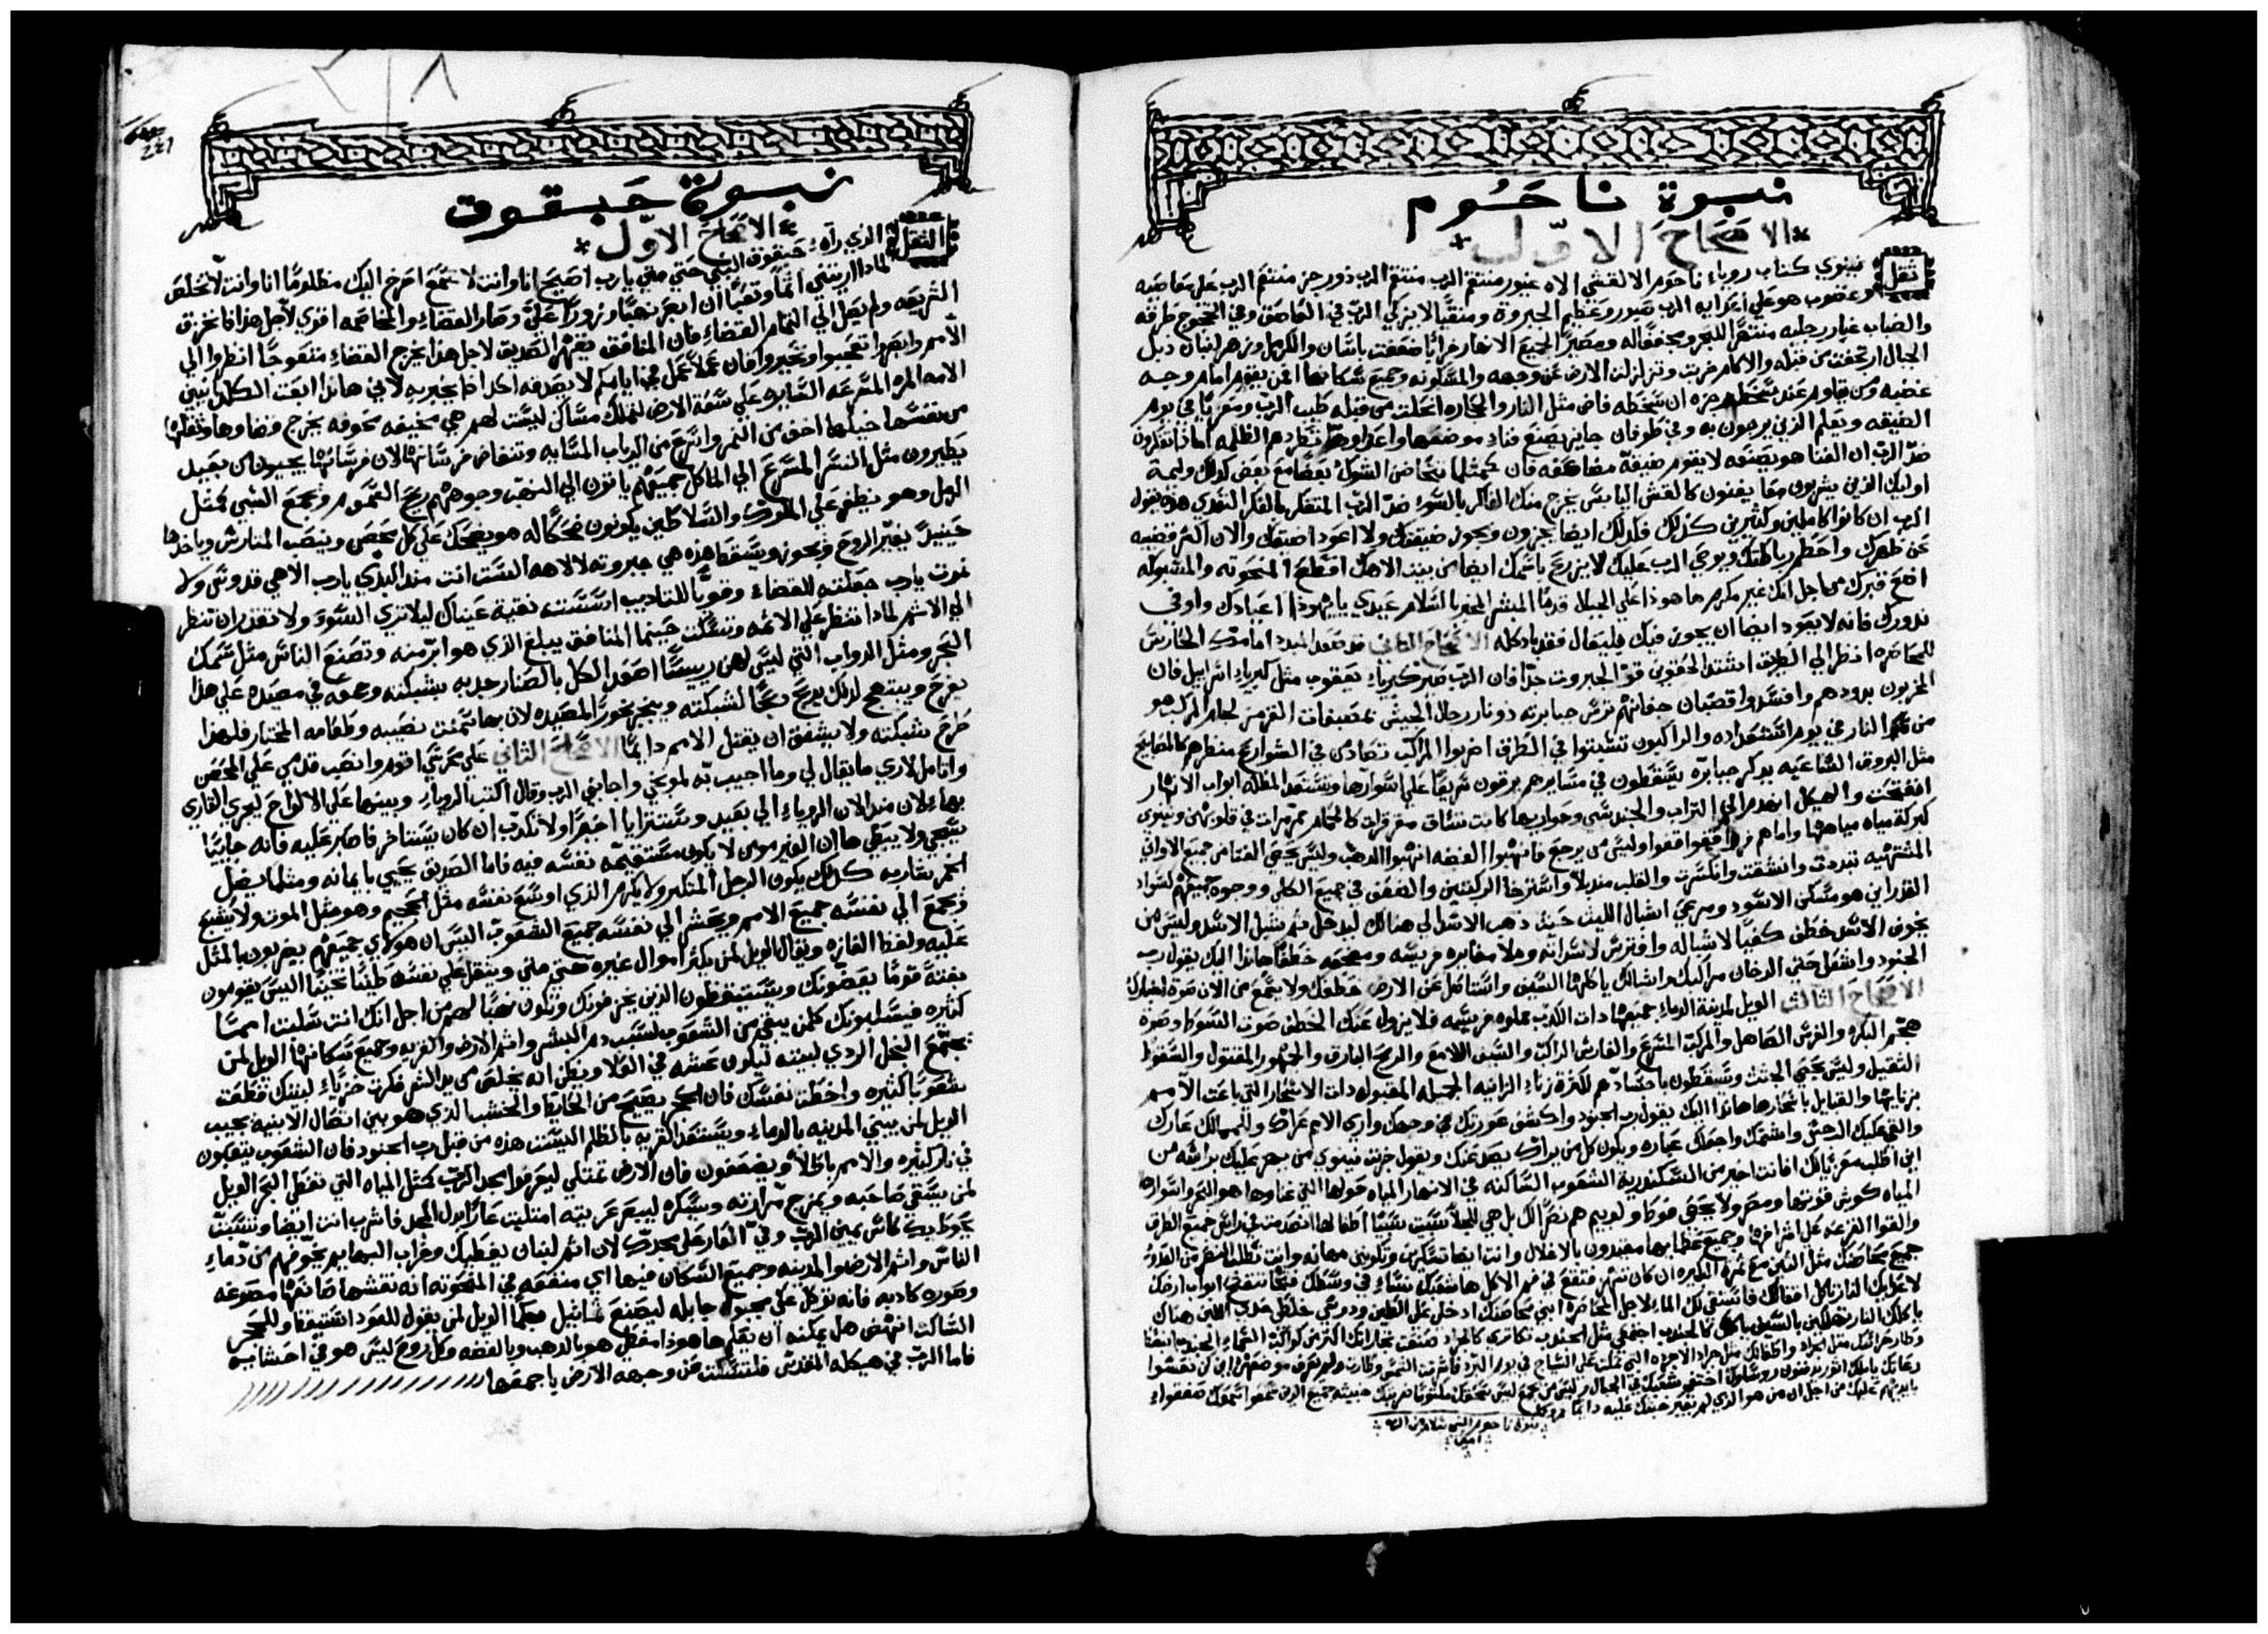 نبوة ناحوم
الاصحاح الاول
ثقل نينوي كتاب روياء ناحوم الالقشي الاه غيور منتقم الرب منتقم الرب ذو رجز منتقم الرب علي مقاضيه
وغضوب هو علي اعدايه الرب صبور وعظيم الجبروة ومنقيا لا يزكي الرب في العاصف وفي التجوج طرقه
والضباب غبار رجليه منتهر للبحر ومجففا له ومصير لجميع الانهار خرابا ضعفت باسان والكرمل وزهر لبنان ذبل
الجبال ارتجفت من قبله والاكام خربت وتزلزلت الارض عن وجهه والمسكونه وجميع سكانها امن يقوم امام وجه
غضبه ومن يقاوم عند سخط رجزه ان سخطه فاض مثل النار والحجاره انحلت من قبله طيب الرب ومعزيا في يوم
الضيقه ويعلم الذين يرجون به وفي طوفان جايز يصنع فناء موضعها واعداوه تطاردهم الظلمه اماذا تفكرون
ضد الرب ان الفنا هو يصنعه لا يقوم ضيقة مضاعفه فان كمثلما تتخاض الشوك بعضا مع بعض كذلك وليمة
اوليك الذين يشربون معا يفنون كالقش اليابس يخرج منك الفاكر بالسوء ضد الرب المتفكر بالفكر النفدي هذه يقول
الرب ان كانوا كاملين وكثيرين كذلك فلذلك ايضا يجزون ويجوز ضيقتك ولا اعود اضيقك والان اكسر قضيبه
عن ظهرك واحطم رباطتك ويوصي الرب عليك لا يزرع باسمك ايضا من بيت الاهك اقطع المنحوته والمسبوكه
اضع قبرك من اجل انك غير مكرم ها هوذا علي الجبال قدما المبشر المخبر بالسلام عيدي يا يهوذا اعيادك واوفي
ندورك فانه لا يعود ايضا ان يجوز فيك بليعال فقد باد كله الاصحاح الثاني قد صعد المبدد امامك الحارس
للمحاصره انظر الي الطريق اشتد الحقوين قوّ الجبروت جدا فان الرب صير كبرياء يعقوب مثل كبرياء اسراييل فان
المخربون بددوهم وافسدوا قضبان جفانهم ترس جبابرته ذو نار رجال الجيش
من لجم النار في يوم استعداده والراكبون تشتتوا في الطرق اضربوا المراكب تصادى في الشوارع منظرهم كالمصابيح
مثل البروق الساعيه يذكر جبابره يسقطون في مسايرهم يرقون سريعا علي اسوارها وتستعد المظله ابواب الانهار
انفتحت والهيكل انهدم الي التراب والجند سبي وجواريها كانت تساق مغرقرات كالحمام متمرمرات في قلوبهن ونينوي
كبركة مياه مياهها واما هم فهربوا قفوا قفوا وليس من يرجع فانهبوا الفضه انهبوا الدهب وليس يحصي الفتا من جميع الاواني
المشتهيه تبددت وانشقت وانكسرت والقلب منديلا واسترخا الركبتين والضعف في جميع الكلي ووجوه جميعهم لسواد
القدر اين هو مسكن الاسود ومرعي اشبال الليت حيث ذهب الاسد الي هنالك ليدخل ثم شبل الاسد وليس من
يخوف الاسد خطف كفيا لاشباله وافترس لاسداته وملا مغايره فريسه ومضجعه خطفا هاندا اليك يقول رب
الجنود واشعل حتي الدخان مراكبك واشبالك ياكلها السيف واستاصل عن الارض خطفك ولا يسمع من الان صوة
الاصحاح الثالث الويل لمدينة الدماء جميعها دات الكدب مملوه فريسه فلا يزول عنك الخطف صوت السوط وصوة
هجم البكره والفرس الصاهل والمركب المسرع والفارس الراكب والسيف اللامع والرمح البارق والجمهور المقتول والسقوط
الثقيل وليس يحصي الجثث ويسقطون باجسادهم لكثرة زناء الزانيه الجميله المقبوله دات الاسحار التي باعت الامم
بزنايها والقبايل باسحارها هاندا اليك يقول رب الجنود واكشف عورتك في وجهك واري الامم عراك وللممالك عارك
والقي عليك الرجس واشتمك واجعلك عباره ويكون كل من يراك يصد عنك ويقول خربت نينوي من يحزن عليك براسه من
اين اطلب معزيا لك افانت اخير من السكندرية الشعوب الساكنه في الانهار المياه حولها التي غناوها هو البحر واسوارها
المياه كوش قوتها ومصر ولا يحصي فوكا ولوبيم هم نصرا لك بل هي للجلا سبيت سبيا اطفالها انصدمت في راس جميع الطرق
والقوا القرعه علي اشرافها وجميع عظمايها مقيدون بالاغلال وانت ايضا تسكرين وتكونين مهانه وانت تطلبا لنصر من العدو
جميع محاصنك مثل التين مع ثمرة البكيره ان كان تنهز فتقع في فم الاكل هاشعبك نساء في وسطك فتحا تنفتح ابواب ارضك
لاعدايك النار تاكل اقفالك فاستقي لك الماء لاجل المحاصره ابني محاصنك ادخلي علي الطين ودوسي خلطي هناك
تاكلك النار تهلكين بالسيف ياكلك كالجندب اجتمعي مثل الجندب تكاتري كالجراد صنعت تجاراتك اكتر من كواكب السماء الجندب
وطار حراسك مثل الجراد واطفالك مثل جراد الاجرده التي تمكث علي السياج في يوم البرد فاشرقت الشمس وطارت ولم يعرف موضعهم اين كن نعسوا
رعاتك يا ملك اتور يدفنون روساوك اختفي شعبك في الجبال وليس من يجمع ليس
بايديهم عليك من اجل ان من هو الذي لم تعبر خبثك عليه دايما
نبوة ناحوم النبي سلام من الله
امين
نبوة حبقوق
الاصحاح الاول
الثقل الذي راه حبقوق النبي حتي متي يارب اصيح انا وانت لا تسمع اصرخ اليك مظلوما انا وانت لا تخلص
لمادا اريتني اتما وتعبا ان ابصر نهبا وزورا عليَّ وصار القضاء والمخاصمه اقوي لاجل هذا فا تمزق
الشريعه ولم يصل الي التمام القضاء فان المنافق يقهر الصديق لاجل هذا يخرج القضاء منعوجا انظروا الي
الامم وابصروا تعجبوا وتحيروا فان عملا عمل في ايامكم لا يصدقه احد اذا يخبر به لاني هاندا ابعث الكلدانيين
الامه المره المسرعه السايره علي سعة الارض لتملك مساكن ليست لهم هي مخيفه مخوفه يخرج قضاوها وثقلها
من نفسها خيلها اخف من النمر واسرع من الدياب المسايه وتتفاض فرسانها لان فرسانها يجيون من بعيد
يطيرون مثل النسر المسرع الي الماكل جميعهم ياتون الي النهب وجوههم ريح السموم ويجمع السبي كمثل
الرمل وهو يظفر علي الملوك والسلاطين يكونون ضحكا له هو يضحك علي كل محصن وينصب المتارس وياخدها
حينيذ يغير الروح ويجوز ويسقط هذه هي جبروته لالاهه الست انت مند البدي يارب الاهي قدوسي ولا
نموت يارب جعلته للقضاء وقويا للتاديب اسسته نقية عيناك ليلا تري السوء ولا تقدر ان تنظر
الي الاتم لمادا تنظر علي الاتمه وتسكت حينما المنافق يبلع الذي هو ابر منه وتصنع الناس مثل سمك
البحر ومثل الدواب التي ليس لهن رييسا اصعد الكل بالصنار جذبه بشبكته وجمعه في مصيده علي هذا
يفرح ويبتهج لذلك يذبح ذبحا لشبكته ويبخر بخورا لمصيده لان بها سمنت نصيبه وطعامه المختار فلهذا
طرح شبكته ولا يشفق ان يقتل الامم دايما الاصحاح الثاني علي محرسي اقوم وانصب قدمي علي الحصن
واتامل لاري ما يقال لي وما اجيب به لموبخي واجابني الرب وقال اكتب الروياء وبينها علي الالواح ليجري القاري
بها لان مند الان الروياء الي بعيد وستتر ايا اخيرا ولا تكدب ان كان يستاخر فاصبر عليه فانه جاييا
يجي ولا يبطي ها ان الغير مومن لا يكون مستقيمه نفسه فيه فاما الصديق يحيي بايمانه ومثلما يضل
الخمر شاربه كذلك يكون الرجل المتكبر ولا يكرم الذي اوسع نفسه مثل الجحيم وهو مثل الموت ولا يشبع
ويجمع الي نفسه جميع الامم ويحشر الي نفسه جميع الشعوب اليس ان هولاي جميعهم يضربون بالمثل
عليه ولغظ الغازه ويقال الويل لمن يكثر اموال غيره حتي متي ويثقل علي نفسه طينا تخينا اليس يقومون
بغتة قوما يعضونك ويستيقظون الذين يمزقونك وتكون نهبا لهم من اجل انك انت سلبت امما
كثيره فيسلبونك كلمن يبقي من الشعوب لسبب دم البشر واتم الارض والقريه وجميع سكانها الويل لمن
يجمع البخل الردي لبيته ليكون عشه في العلا ويظن انه يخلص من يد الشر فكرت خزياء لبيتك قطعت
شعوبا كثيره واخطت نفسك فان الحجر يصيح من الحايط والخشب الذي هو بين اتصال الابنيه يجيب
الويل لمن يبني المدينه بالدماء ويستعد القريه بالظلم اليست هذه من قبل رب الجنود فان الشعوب يتعبون
في نار كثيره والامم باطلا ويضعفون فان الارض تمتلي ليعرفوا مجد الرب كمثل المياه التي تغطي البحر الويل
لمن يسقي صاحبه ويمزج مرارته ويسكره ليبصر عريته امتليت عارا بدل المجد فاشرب انت ايضا
يحوط بك كاس يمين الرب وفيّ العار علي مجدك لان اتم لبنان يغطيك وخراب البهايم يخوفهم من دماء
الناس واتم الارض والمدينه وجميع السكان فيها اي منفعه في المنحوته انه نقشها صانعها مصوغه
وصوره كادبه فانه توكل علي مجبوله جابله ليصنع تماتيل صما الويل لمن يقول للعود استيقظ وللحجر
الساكت انهض هل يمكنه ان يعلم ها هودا مغطي هو بالدهب وبالفضه وكل روح ليس هو في احشايه
فاما الرب في هيكله المقدس فلتسكت من وجهه الارض باجمعها